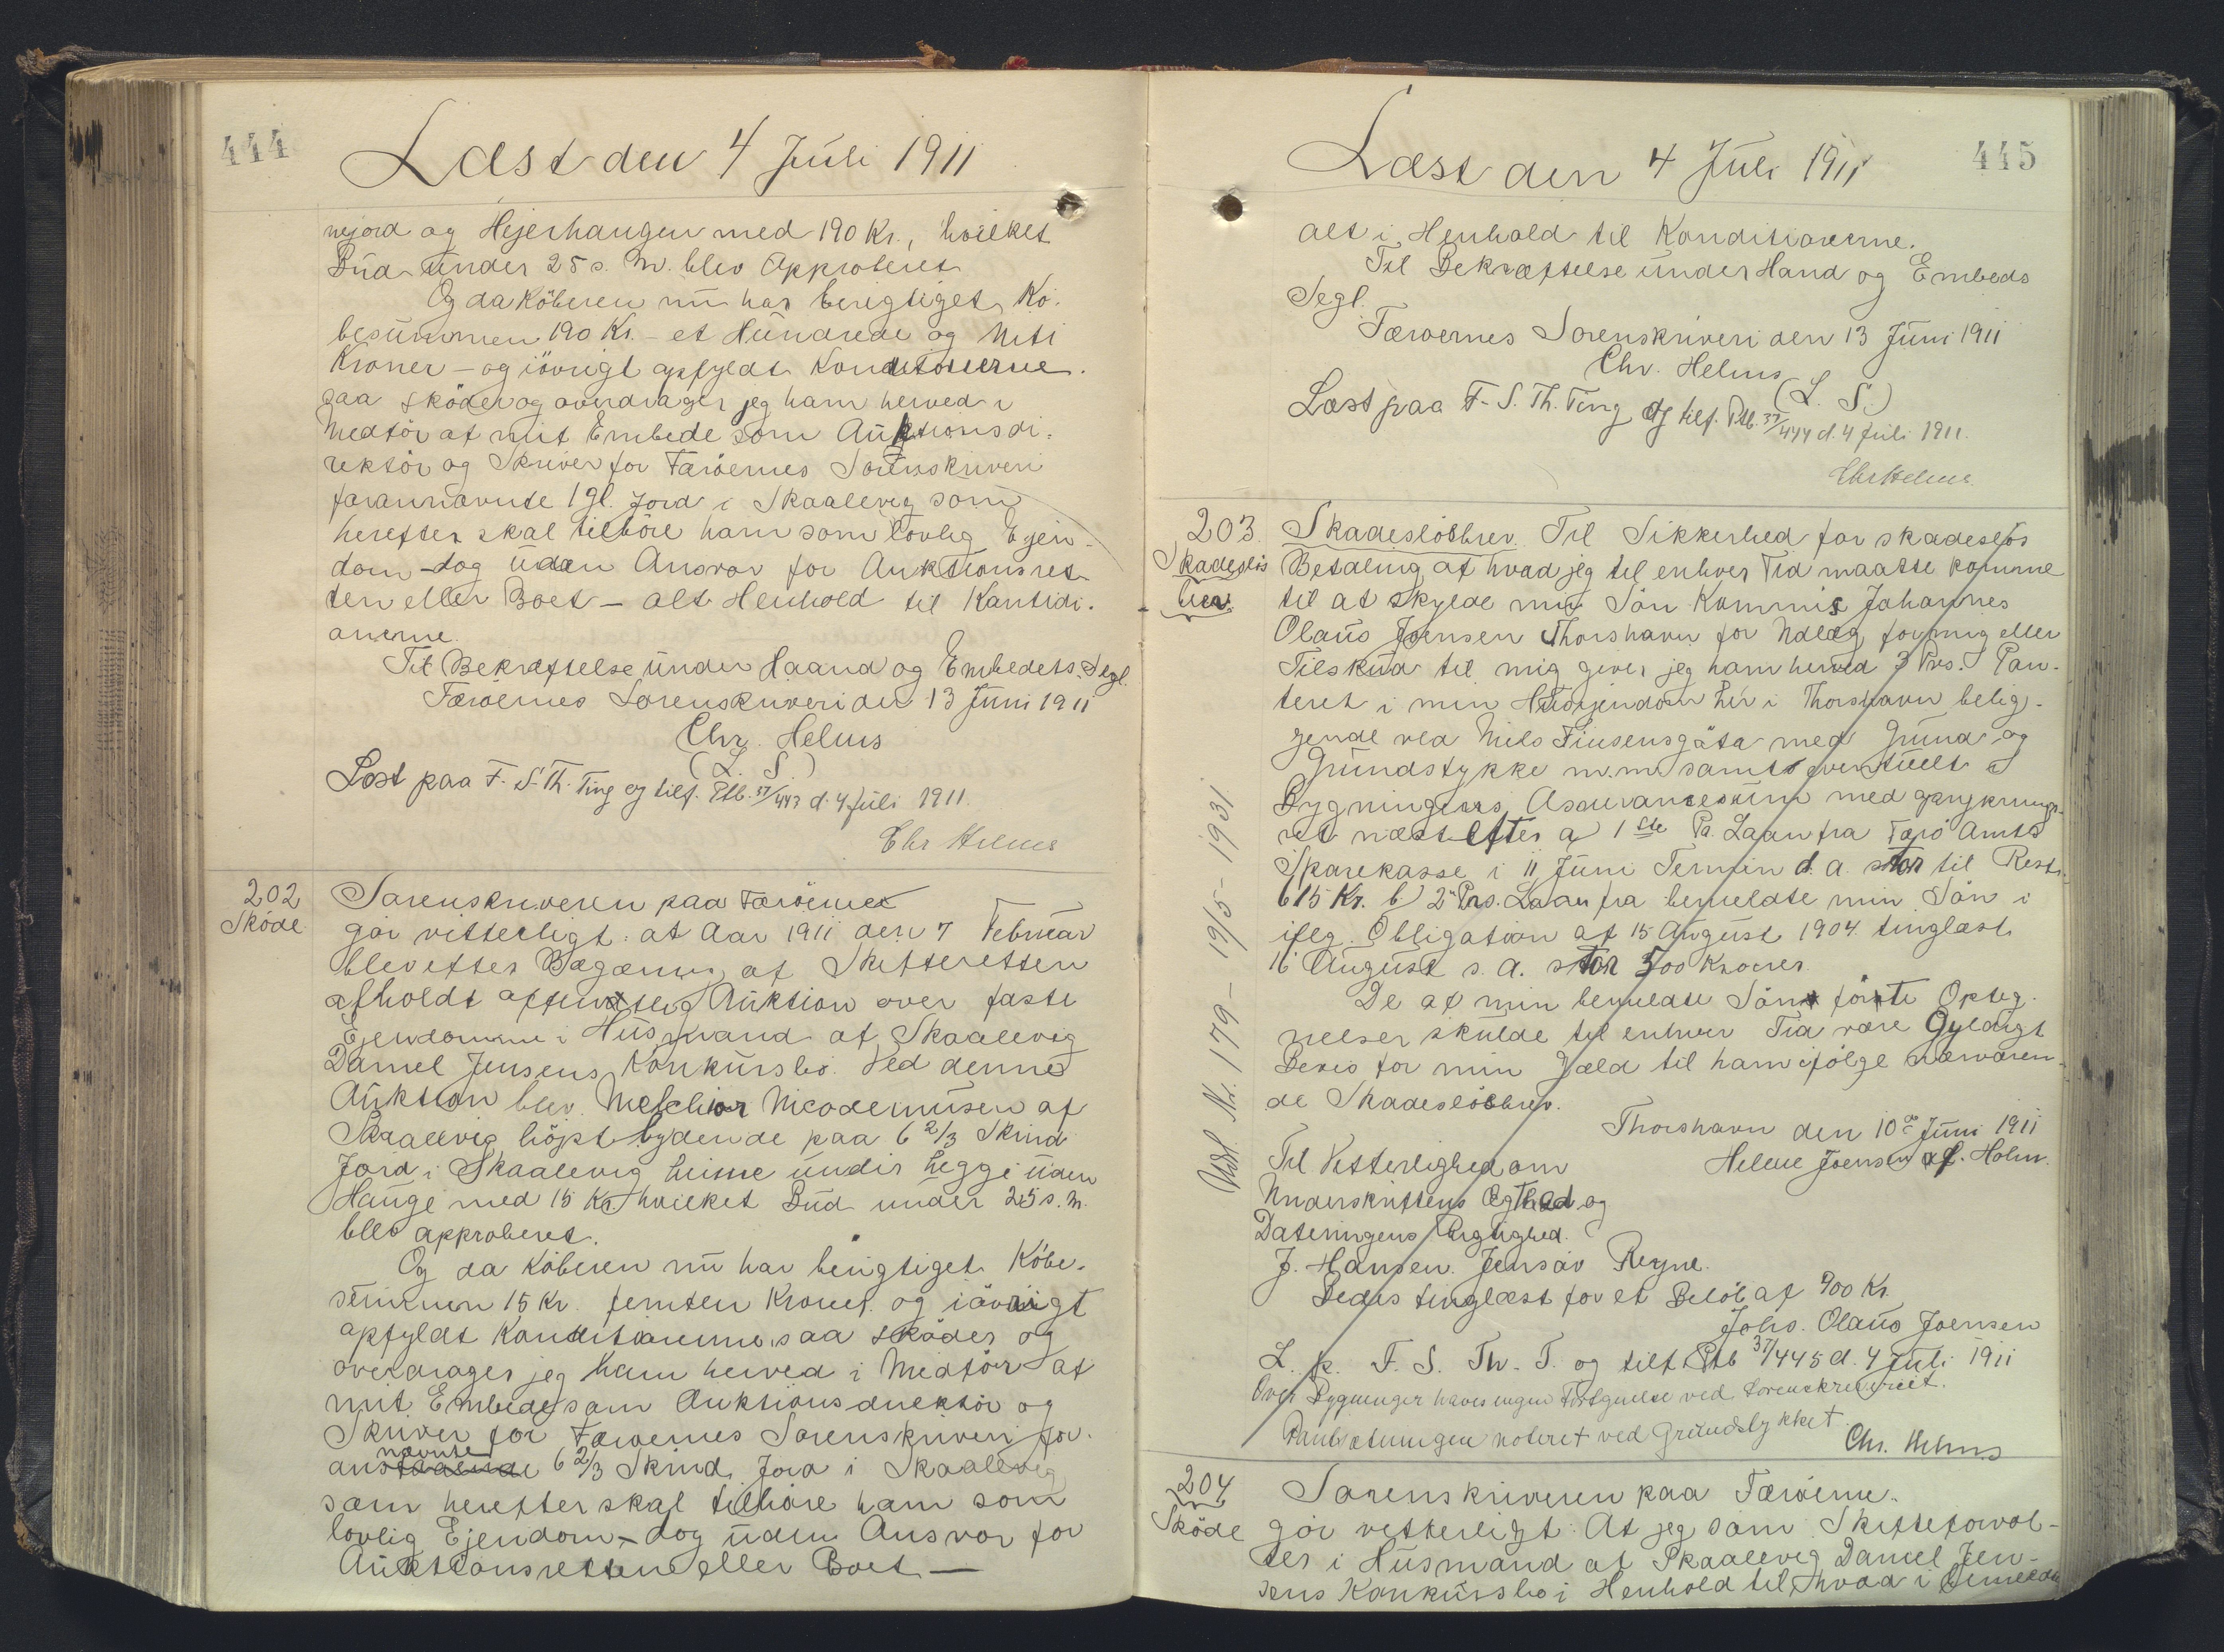 444
Læst den 4 Juli 1911
nejord og Hejerhaugen med 190 Kr., hvilket
Bud under 25 s. M. blev Approberet
Og da Köberen nu har berigtiget Kö-
besummen 190 Kr. - et Hundrede og Niti
Kroner - og iövrigt opfyldt Konditionerne
saa sköder og overdrager jeg ham herved i
Medför af mit Embede som Auktionsdi-
rektör og Skriver for Færöernes Sorenskriveri
forannævnte 1 gl. Jord i Skaalevig som
herefter skal tilhöre ham som lovlig Ejen-
dom - dog uden Ansvar for Auktionsret-
ten eller Boet - alt Henhold til Kontidi-
onerne.
Til Bekræftelse under Haand og Embedets Segl.
Færöernes Sorenskriveri den 13 Juni 1911
Chr. Helms
(L. S.)
Læst paa F. S. Th. Ting og tilf. Ptb. 37/443 d. 4 Juli 1911.
Chr Helms
202
Sköde
Sorenskriveren paa Færöerne
gör vitterligt: at Aar 1911 den 7 Februar
blev efter Begæring af Skifteretten
afholdt offentlig Auktion over faste
Ejendomme i Husmand af Skaalevig
Daniel Jensens Konkursbo. Ved denne
Auktion blev Melchior Nicodemusen af
Skaalevig höjstbydende paa 6 2/3 Skind
Jord i Skaalevig heime undir heggi uden
Hauge med 15 Kr. hvilket Bud under 25 s. M.
blev approberet.
Og da Köberen nu har berigtiget Köbe-
summen 15 Kr. femten Kroner og iövrigt
opfyldt Konditionerne, saa sköder og
overdrager jeg ham herved i Medför af
mit Embede som Auktionsdirektör og
Skriver for Færöernes Sorenskriveri for-
nævnte
anstaaende 6 2/3 Skind Jord i Skaalevig
som herefter skal tilhöre ham som
lovlig Ejendom - dog uden Ansvar for
Auktionsretten eller Boet -
445
Læst den 4 Juli 1911
alt i Henhold til Konditionerne.
Til Bekræftelse under Hand og Embeds
Segl.
Færöernes Sorenskriveri den 13 Juni 1911
Chr. Helms
(L. S.)
Læst paa F. S. Th. Ting og tilf. Ptb. 37/444 d. 4 Juli 1911.
Chr Helms
203.
Skadeslös
brev.
Skadeslösbrev. Til Sikkerhed for skadeslös
Betaling af hvad jeg til enhver Tid maatte komme
til at skylde min Sön Kommis Johannes
Olaus Joensen Thorshavn for Udlæg for mig eller
Tilskud til mig giver jeg ham herved 3 Prs. Pan-
teret i min Husejendom her i Thorshavn belig-
gende ved Niels Finsensgöta med Grund og
Grundstykke m.m. samt eventuelt i
Bygningens Assurancesum med opryknings-
ret næst efter a) 1ste Pr. Laan fra Færö Amts
Sparekasse i 11 Juni Termin d. a. stor til Rest
615 Kr. b) 2 Prs. Laan fra bemeldte min Sön i
iflg. Obligation af 15 August 1904 tinglæst
16 August s. a. stor 500 Kroner.
De af min bemeldte Sön förte Opteg-
nelser skulde til enhver Tid være Gyldigt
Bevis for min Gæld til ham ifölge nærværen-
de Skadeslösbrev.
Thorshavn den 10de Juni 1911
Helene Joensen af. Holm.
Til Vitterlighed om
Underskriftens Ægthed og
Dateringens Rigtighed.
J. Hansen. Jensar Reyne.
Bedes tinglæst for et Belöb af 400 Kr.
Johs. Olaus Joensen
L. p. F. S. Th. T. og tilf. Ptb 37/445 d. 4 Juli 1911
Over Bygninger haves ingen Fortegnelse ved Sorenskriveriet.
Pantsætningen noteret ved Grundstykket.
Chr. Helms
Udsl. Nr. 179 - 19/5 - 1931
204
Sköde
Sorenskriveren paa Færöerne.
gör vitterligt: At jeg som Skifteforval-
ter i Husmand af Skaalevig Daniel Jen-
sens Konkursbo i Henhold til hvad i